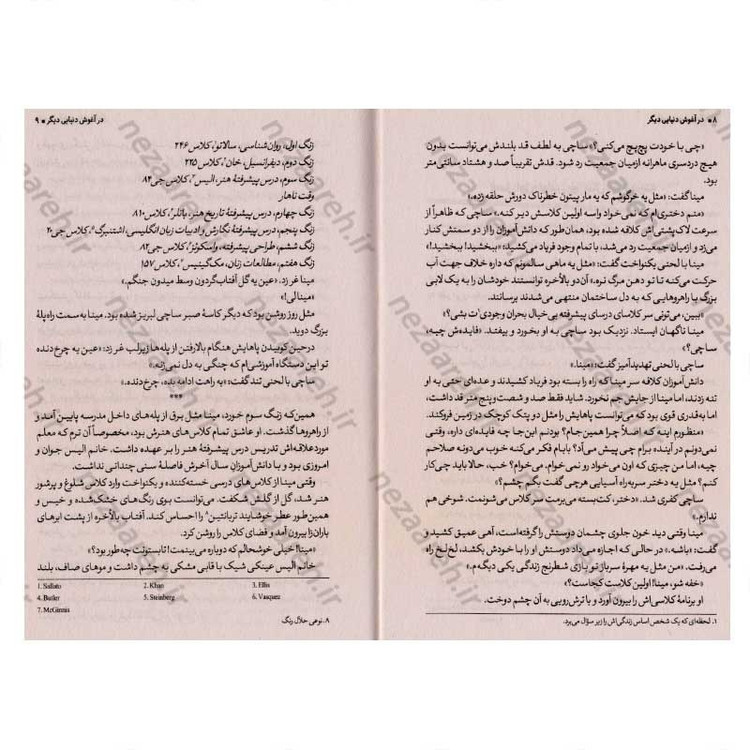 ۸ ■ در آغوش دنیایی دیگر
«چی با خودت پچ‌پچ می‌کنی؟» ساچی به لطف قد بلندش می‌توانست بدون
هیچ دردسری ماهرانه ازمیان جمعیت رد شود. قدش تقریباً صد و هشتاد سانتی‌متر
بود.
مینا گفت: «مثل یه خرگوشم که یه مار پیتون خطرناک دورش حلقه زده.»
«منم دختری‌ام که نمی‌خواد واسه اولین کلاسش دیر کنه.» ساچی که ظاهراً از
سرعت لاک‌پشتی‌اش کلافه شده بود، همان‌طور که دانش‌آموزان را از دو سمتش کنار
می‌زد و ازمیان جمعیت رد می‌شد، با تمام وجود فریاد می‌کشید: «ببخشید! ببخشید!»
مینا با لحنی یکنواخت گفت: «مثل یه ماهی سالمونم که داره خلاف جهت آب
حرکت می‌کنه تا تو دهن مرگ بره.» آن‌دو بالأخره توانستند خودشان را به یک لابی
بزرگ با راهروهایی که به دل ساختمان منتهی می‌شدند برسانند.
«ببین، می‌تونی سر کلاسای درسای پیشرفته بی‌خیال بحران وجودی¹‌ت بشی؟»
مینا ناگهان ایستاد. نزدیک بود ساچی به او بخورد و بیفتد. «فایده‌ش چیه،
ساچی؟»
ساچی با لحنی تهدیدآمیز گفت: «مینا.»
دانش‌آموزان کلافه سر مینا که راه را بسته بود فریاد کشیدند و عده‌ای حتی به او
تنه زدند، اما مینا از جایش جم نخورد. شاید فقط صد و شصت و پنج متر قد داشت،
اما به‌قدری قوی بود که می‌توانست پاهایش را مثل دو پتک کوچک در زمین فروکند.
«منظورم اینه که اصلاً چرا همین‌جام؟ بودنم این‌جا چه فایده‌ای داره، وقتی
نمی‌دونم در آینده برام چی پیش می‌آد؟ بابام فکر می‌کنه خوب می‌دونه صلاحم
چیه، اما من چیزی که اون می‌خواد رو نمی‌خوام. می‌خوام؟ خب، حالا باید چی‌کار
کنم؟ مثل یه دختر سربه‌راه آسیایی هرچی گفت بگم چشم؟»
ساچی کفری شد. «دختر، کت‌بسته می‌برمت سر کلاس می‌شونمت. شوخی هم
ندارم.»
مینا وقتی دید خون جلوی چشمان دوستش را گرفته‌است، آهی عمیق کشید و
گفت: «باشه.» در حالی که اجازه می‌داد دوستش او را با خودش بکشد، لخ‌لخ راه
می‌رفت. «من مثل یه مهرۀ سرباز تو بازی شطرنج زندگی یکی دیگه‌م.»
«خفه شو، مینا! اولین کلاست کجاست؟»
او برنامۀ کلاسی‌اش را بیرون آورد و با ترش‌رویی به آن چشم دوخت.
۱. لحظه‌ای که یک شخص اساس زندگی‌اش را زیر سؤال می‌برد.
در آغوش دنیایی دیگر ■ ۹
زنگ اول، روان‌شناسی، سالاتو¹، کلاس ۲۴۶
زنگ دوم، دیفرانسیل، خان²، کلاس ۲۲۵
زنگ سوم، درس پیشرفتۀ هنر، الیس³، کلاس جی۸۴
وقت ناهار
زنگ چهارم، درس پیشرفتۀ تاریخ هنر، باتلر⁴، کلاس ۸۱۰
زنگ پنجم، درس پیشرفتۀ نگارش و ادبیات زبان انگلیسی، اشتنبرگ⁵، کلاس جی۲۰
زنگ ششم، طراحی پیشرفته، واسکوئز⁶، کلاس جی۸۲
زنگ هفتم، مطالعات زنان، مک‌گینیس⁷، کلاس ۱۵۷
مینا غر زد: «عین یه گل آفتاب‌گردون وسط میدون جنگم.»
«مینالی!»
مثل روز روشن بود که دیگر کاسۀ صبر ساچی لبریز شده بود. مینا به سمت راه‌پلۀ
بزرگ دوید.
درحین کوبیدن پاهایش هنگام بالارفتن از پله‌ها زیرلب غر زد: «عین یه چرخ‌دنده
تو این دستگاه آموزشی‌ام که چنگی به دل نمی‌زنه.»
ساچی با لحنی تند گفت: «به راهت ادامه بده، چرخ‌دنده.»
***
همین‌که زنگ سوم خورد، مینا مثل برق از پله‌های داخل مدرسه پایین آمد و
از راهروها گذشت. او عاشق تمام کلاس‌های هنرش بود، مخصوصاً آن ترم که معلم
موردعلاقه‌اش تدریس درس پیشرفتۀ هنر را بر عهده داشت. خانم الیس جوان و
امروزی بود و با دانش‌آموزان سال آخرش فاصلۀ سنی چندانی نداشت.
وقتی مینا از کلاس‌های درسی خسته‌کننده و یکنواخت وارد کلاس شلوغ و پرشور
هنر شد، گل از گلش شکفت. می‌توانست بوی رنگ‌های خشک‌شده و خیس و
همین‌طور عطر خوشایند تربانتین⁸ را احساس کند. آفتاب بالأخره از پشت ابرهای
باران‌زا بیرون آمد و فضای کلاس را روشن کرد.
«مینا! خیلی خوشحالم که دوباره می‌بینمت! تابستونت چه‌طور بود؟»
خانم الیس عینکی شیک با قابی مشکی به چشم داشت و موهای صاف، بلند
1. Sallato 2. Khan 3. Ellis
4. Butler 5. Steinberg 6. Vasquez
7. McGinnis
۸. نوعی حلال رنگ
nezaareh.ir